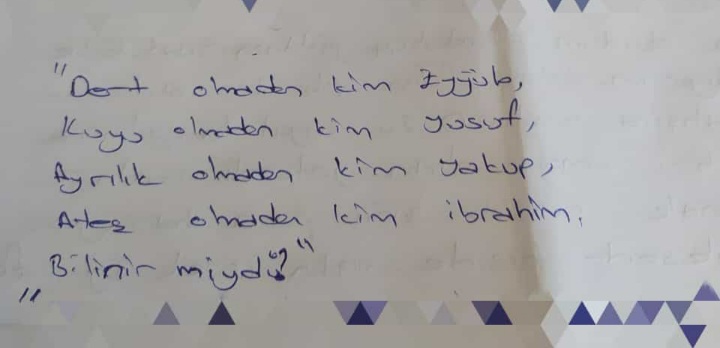 "Dert olmadan kim Eyyüb,
Kuyu olmadan kim Yusuf,
Ayrılık olmadan kim Yakup,
Ateş olmadan kim ibrahim,
Bilinir miydi?"
"